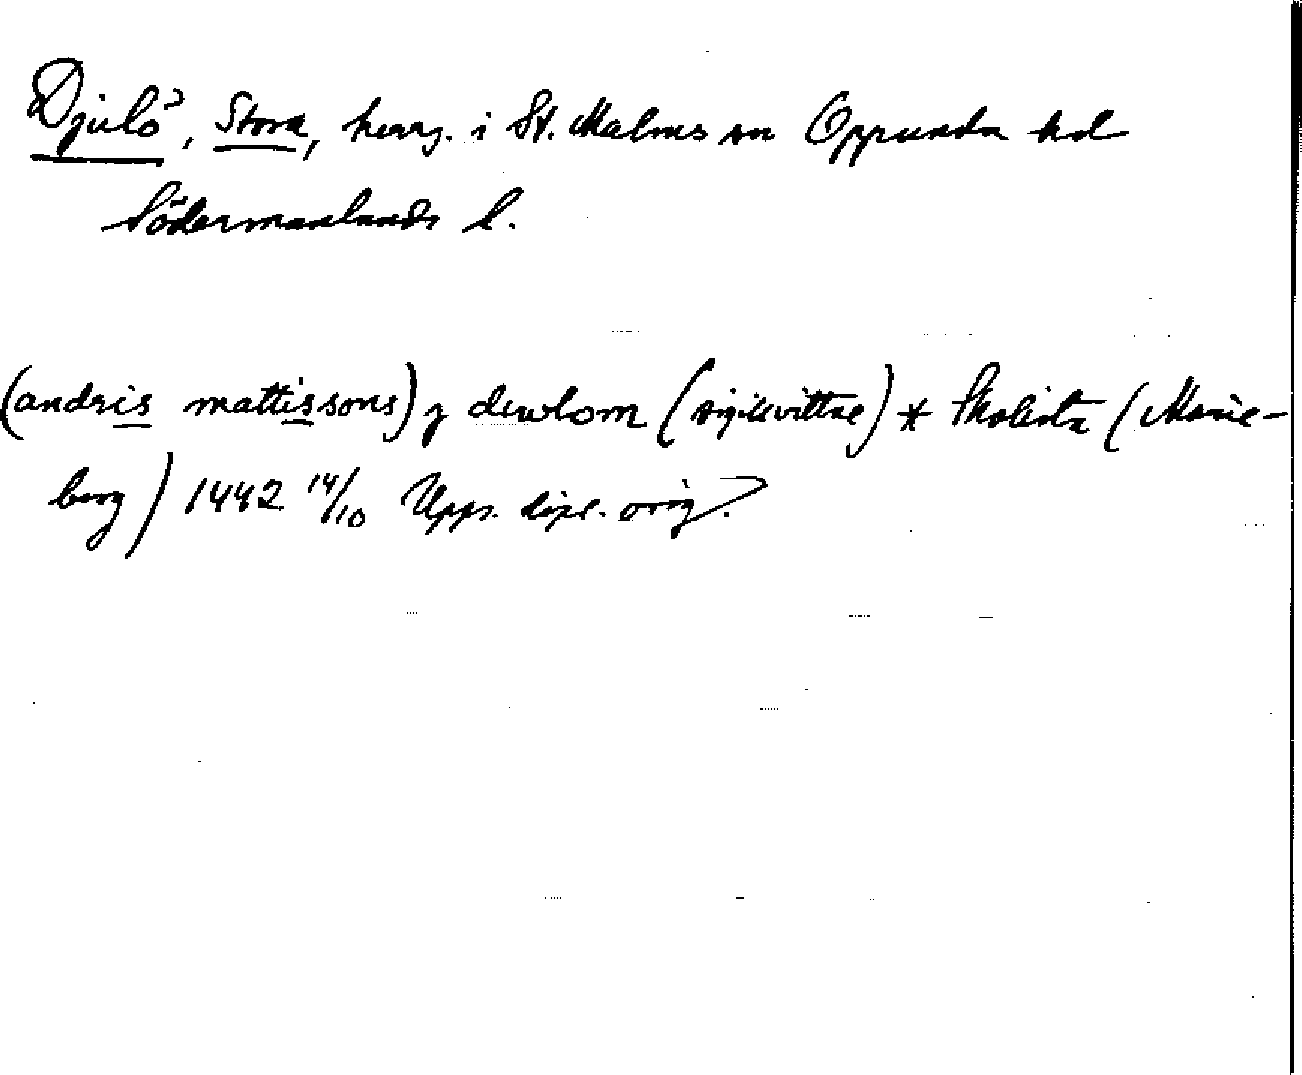 Djulö, Stora, herrg. i St. Malms sn Oppunda hd
Södermanlands l.
(andris mattissons) j dewlom (sigillvittne) * Skolista (Marie-
berg) 1442 14/10 Upps. dipl. orig.